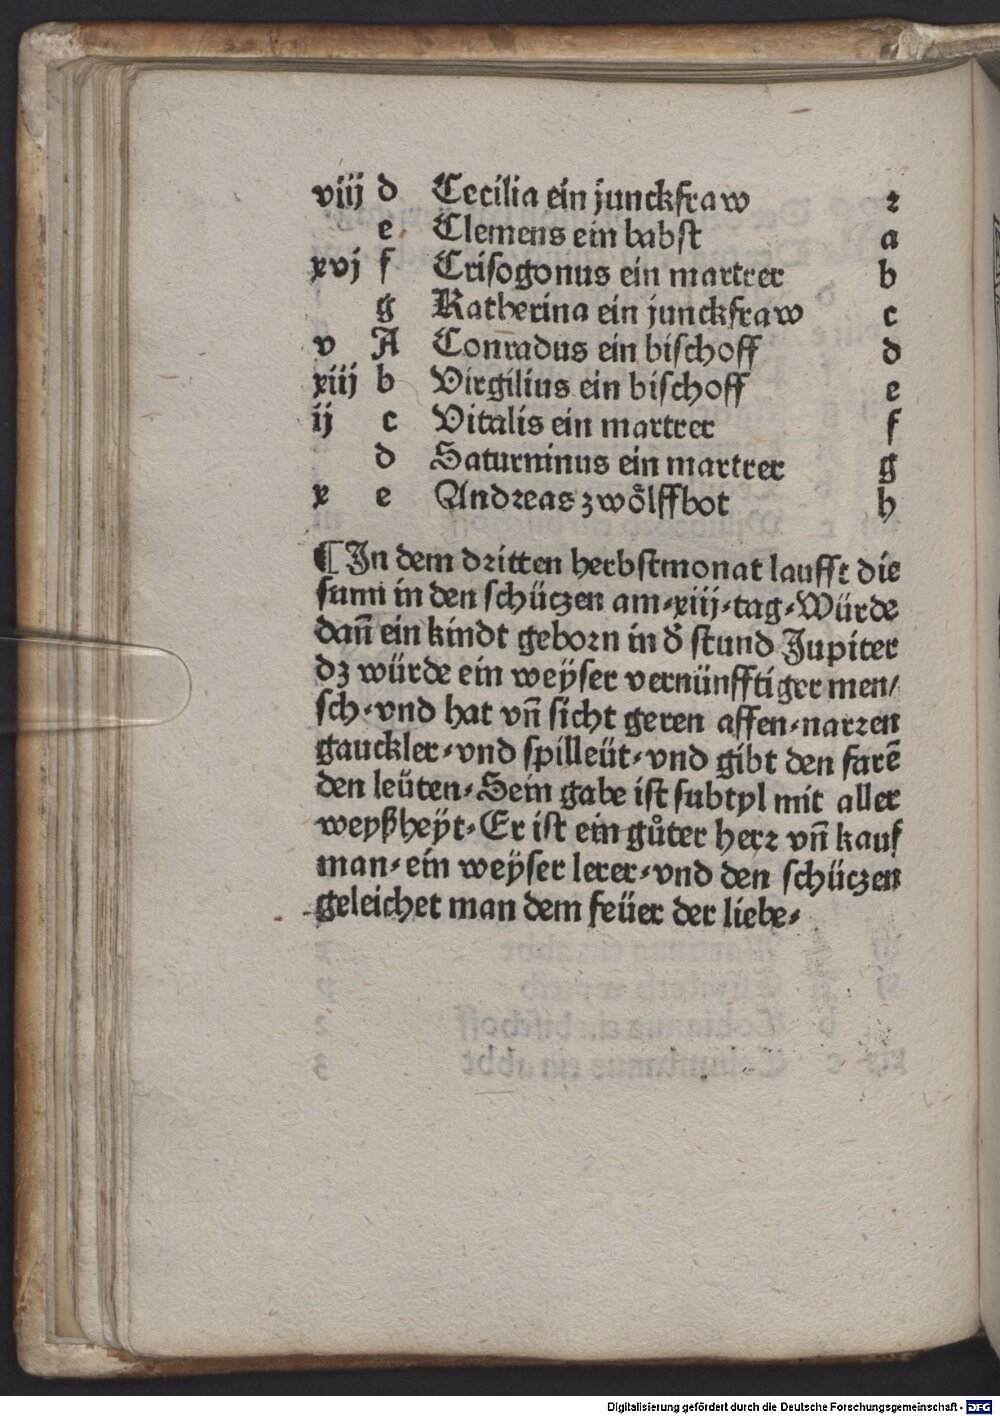 viij d Cecilia ein junckfraw z
e Clemens ein babst a
xvj f Crisogonus ein martrer b
g Katherina ein junckfraw c
v A Conradus ein bischoff d
xiij b Virgilius ein bischoff e
ij c Vitalis ein martrer f
d Saturninus ein martrer g
x e Andreas zwoͤlffbot h
¶ In dem dritten herbstmonat laufft die
sunn in den schützen am·xiij·tag·Würde
dañ ein kindt geborn in d̛ stund Jupiter
dz würde ein weÿser vernünfftiger men/
sch·vnd hat vñ sicht geren affen·narren
gauckler·vnd spilleüt·vnd gibt den farē
den leüten·Sein gabe ist subtyl mit aller
weyßheÿt·Er ist ein guͦter herr vñ kauf
man·ein weÿser lerer·vnd den schützen
geleichet man dem feüer der liebe·
Digitalisierung gefördert durch die Deutsche Forschungsgemeinschaft - DFG